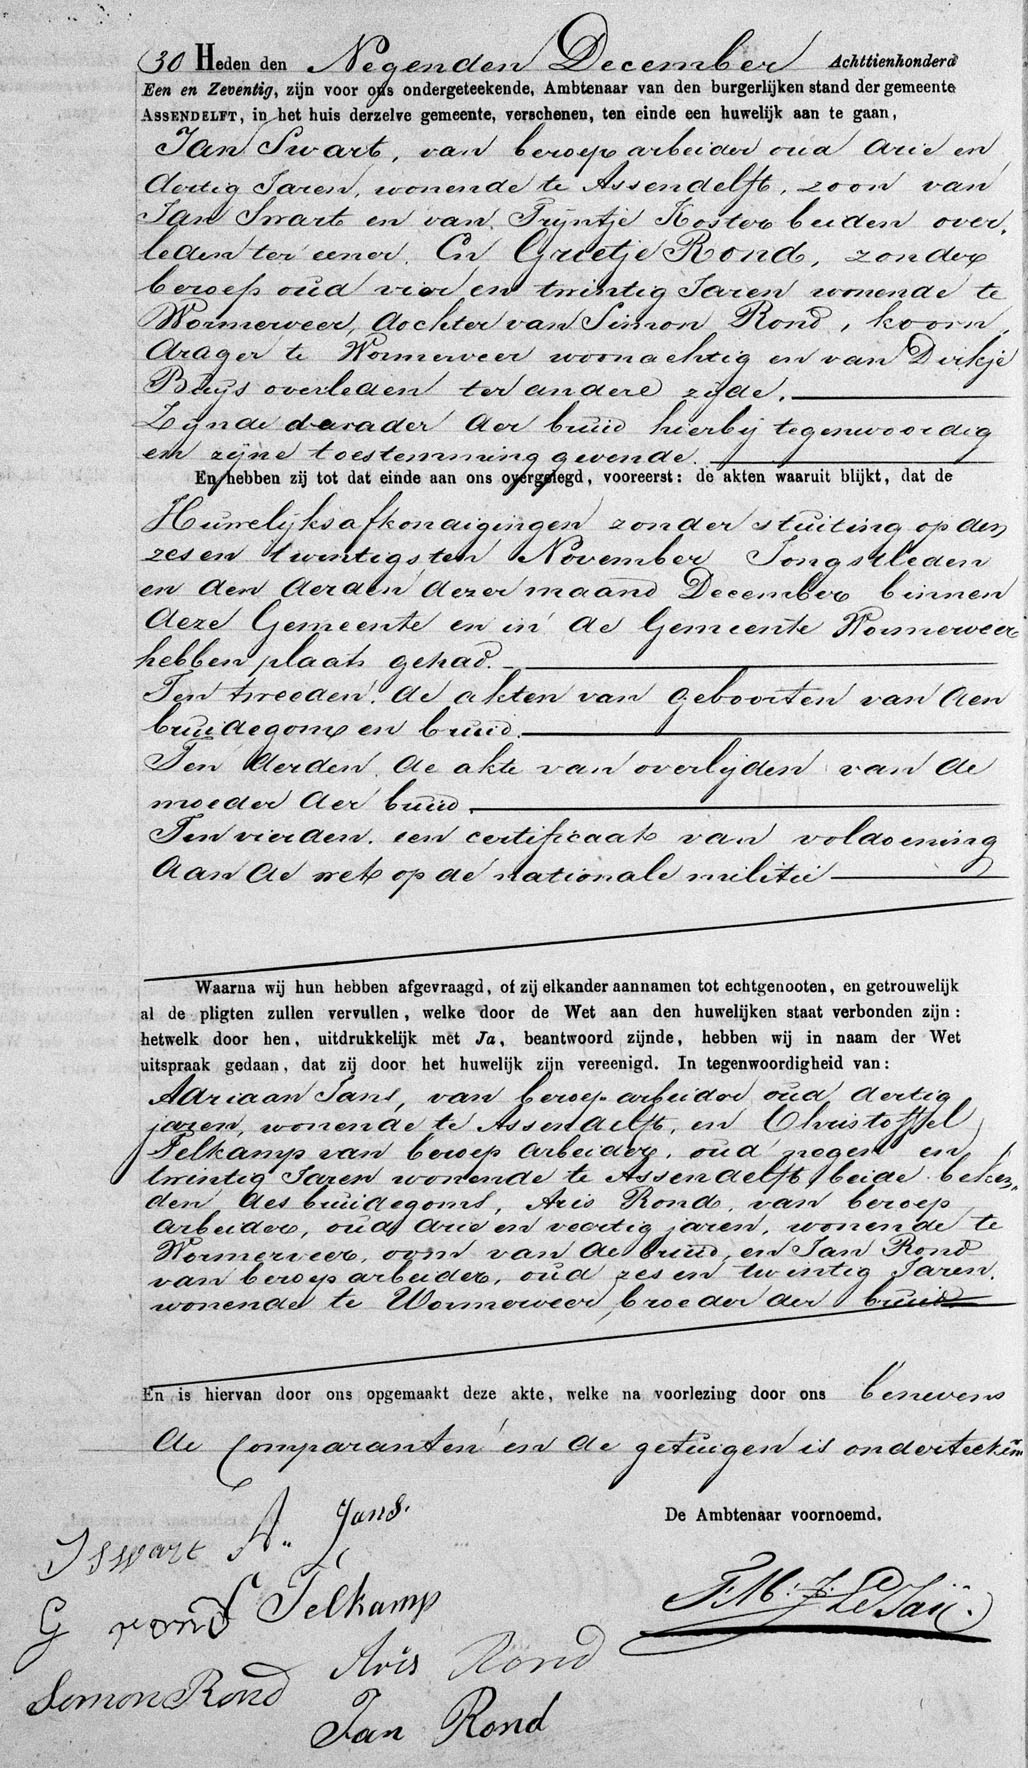 30 Heden den Negenden December Achttienhonderd
Een en Zeventig, zijn voor ons ondergeteekende, Ambtenaar van den burgerlijken stand der gemeente
ASSENDELFT, in het huis derzelve gemeente, verschenen, ten einde een huwelijk aan te gaan,
Jan Swart, van beroep arbeider oud drie en
dertig Jaren, wonende te Assendelft, zoon van
Jan Swart en van Trijntje Koster beiden over,
leden ter eener. En Grietje Rond, zonder
beroep oud vier en twintig Jaren wonende te
Wormerveer, dochter van Simon Rond, koorn,
drager te Wormerveer woonachtig en van Dirkje
Buijs overleden ter andere zijde.
Zijnde de vader der bruid hierbij tegenwoordig
en zijne toestemming gevende.
En hebben zij tot dat einde aan ons overgelegd, vooreerst: de akten waaruit blijkt, dat de
Huwelijksafkondigingen zonder stuiting op den
zes en twintigsten November Jongstleden
en den derden dezer maand December binnen
deze Gemeente en in de Gemeente Wormerveer
hebben plaats gehad.
Ten tweeden. de akten van geboorten van den
bruidegom en bruid.
Ten derden. de akte van overlijden van de
moeder der bruid.
Ten vierden. een certificaat van voldoening
aan de wet op de nationale militie
Waarna wij hun hebben afgevraagd, of zij elkander aannamen tot echtgenooten, en getrouwelijk
al de pligten zullen vervullen, welke door de Wet aan den huwelijken staat verbonden zijn:
hetwelk door hen, uitdrukkelijk met Ja, beantwoord zijnde, hebben wij in naam der Wet
uitspraak gedaan, dat zij door het huwelijk zijn vereenigd. In tegenwoordigheid van:
Adriaan Jans, van beroep arbeider oud dertig
jaren, wonende te Assendelft, en Christoffel
Telkamp van beroep arbeider, oud negen en
twintig Jaren wonende te Assendelft, beide beken,
den des bruidegoms, Aris Rond, van beroep
arbeider, oud drie en veertig jaren, wonende te
Wormerveer, oom van de bruid, en Jan Rond
van beroep arbeider, oud zes en twintig Jaren.
wonende te Wormerveer, broeder der bruid.
En is hiervan door ons opgemaakt deze akte, welke na voorlezing door ons benevens
de Comparanten en de getuigen is onderteekend
De Ambtenaar voornoemd.
J Swart A. Jans.
G rond C Telkamp
Simon Rond Aris Rond
Jan Rond